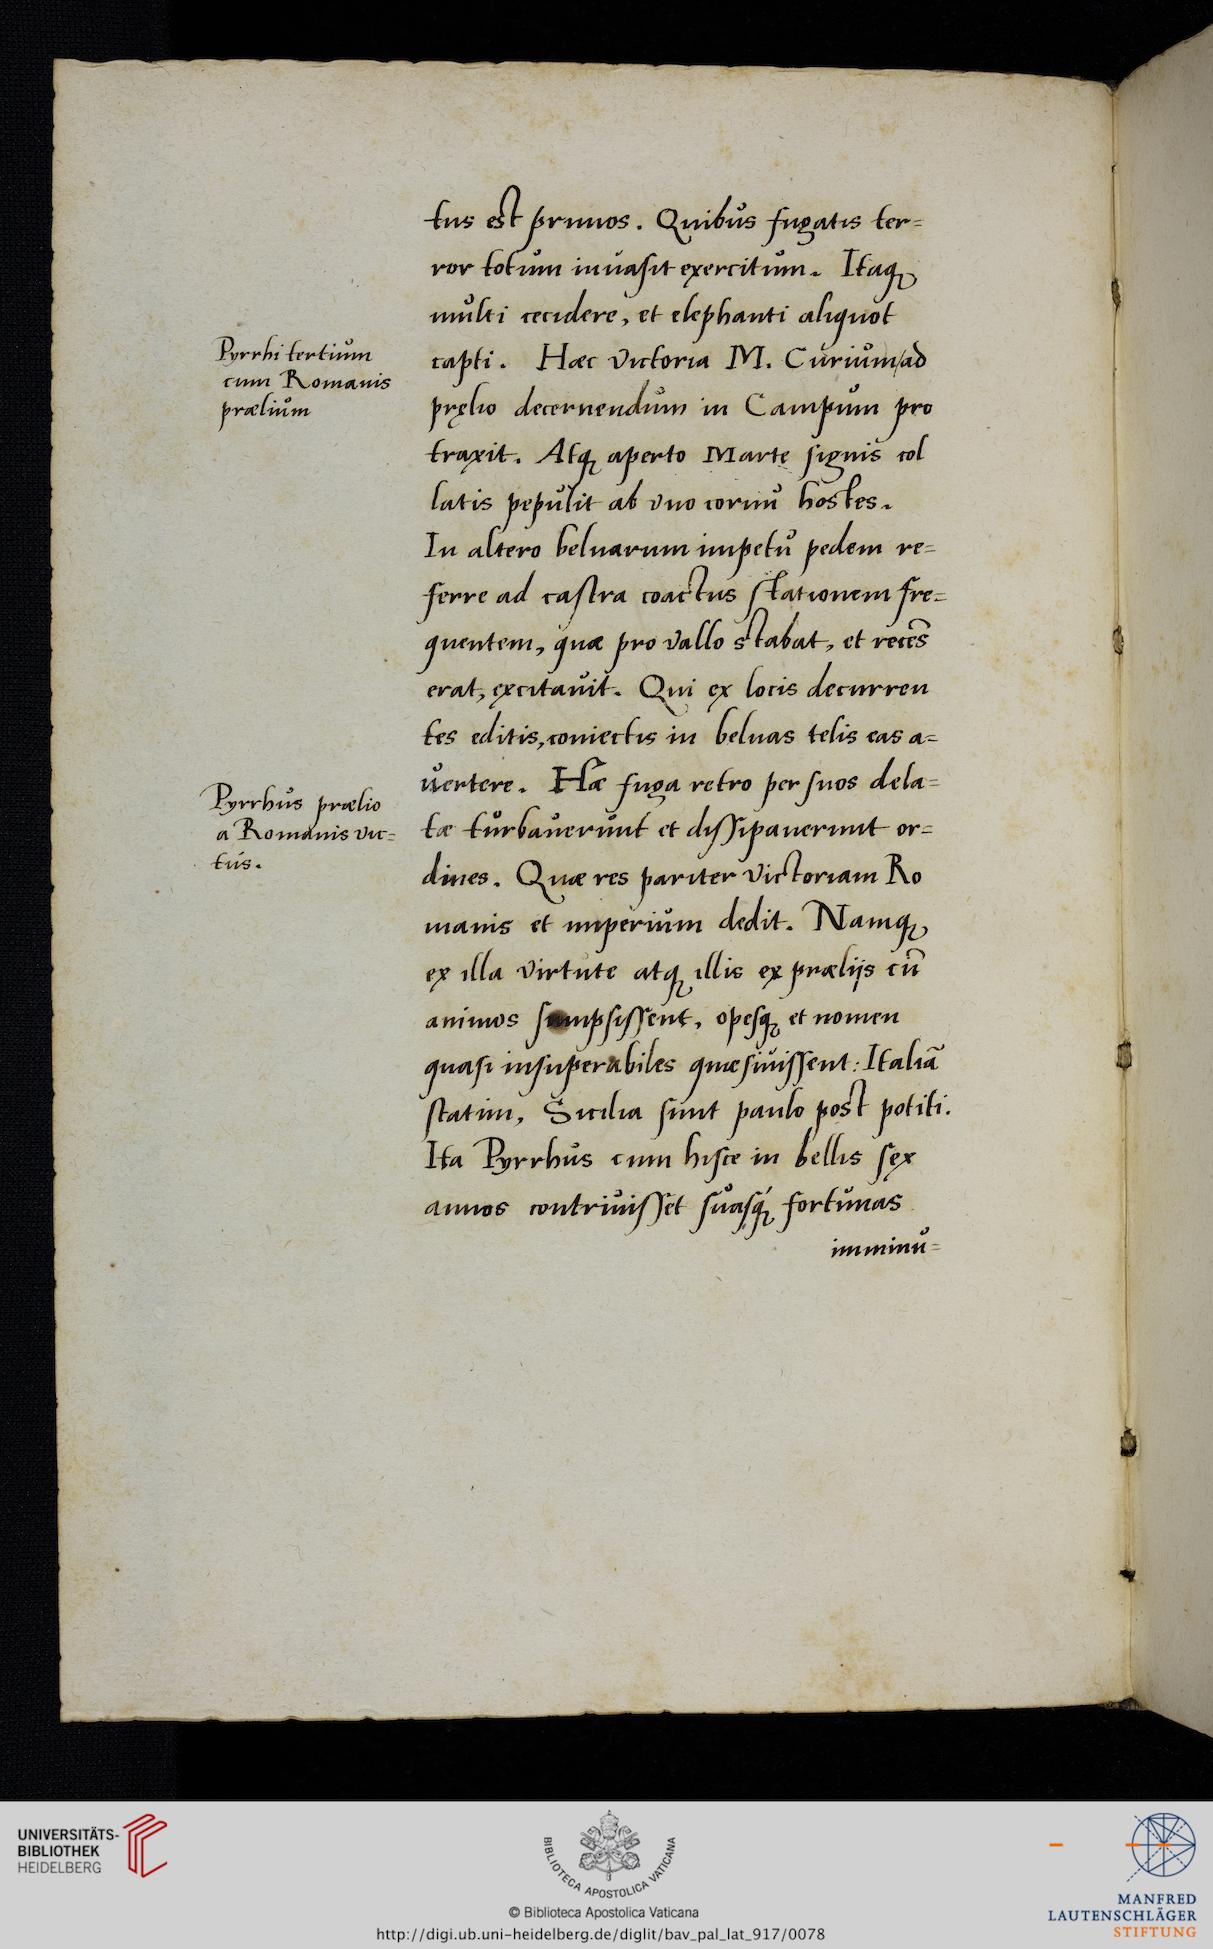 tus est primos. Quibus fugatis ter=
ror totum inuasit exercitum. Itaq;
multi cecidere, et elephanti aliquot
capti. Hæc victoria M. Curium/ad
pręlio decernendum in Campum pro
traxit. Atq; aperto Marte signis col
latis pepulit ab vno cornu hostes.
In altero beluarum impetu pedem re=
ferre ad castra coactus stationem fre=
quentem, quæ pro vallo stabat, et recẽs
erat, excitauit. Qui ex locis decurren
tes editis, coniectis in beluas telis eas a=
uertere. Hæ fuga retro per suos dela=
tæ turbauerunt et dissipauerunt or=
dines. Quæ res pariter victoriam Ro
manis et imperium dedit. Namq;
ex illa virtute atq; illis ex prælijs cũ
animos sumpsissent, opesq; et nomen
quasi insuperabiles quæsiuissent: Italiã
statim, Sicilia sunt paulo post potiti.
Ita Pyrrhus cum hisce in bellis sex
annos contriuisset suasq́; fortunas
imminu=
Pyrrhi tertium
cum Romanis
prælium
Pyrrhus prælio
a Romanis vic=
tus.
UNIVERSITÄTS-
BIBLIOTHEK
HEIDELBERG
BIBLIOTECA APOSTOLICA VATICANA
© Biblioteca Apostolica Vaticana
http://digi.ub.uni-heidelberg.de/diglit/bav_pal_lat_917/0078
MANFRED
LAUTENSCHLÄGER
STIFTUNG